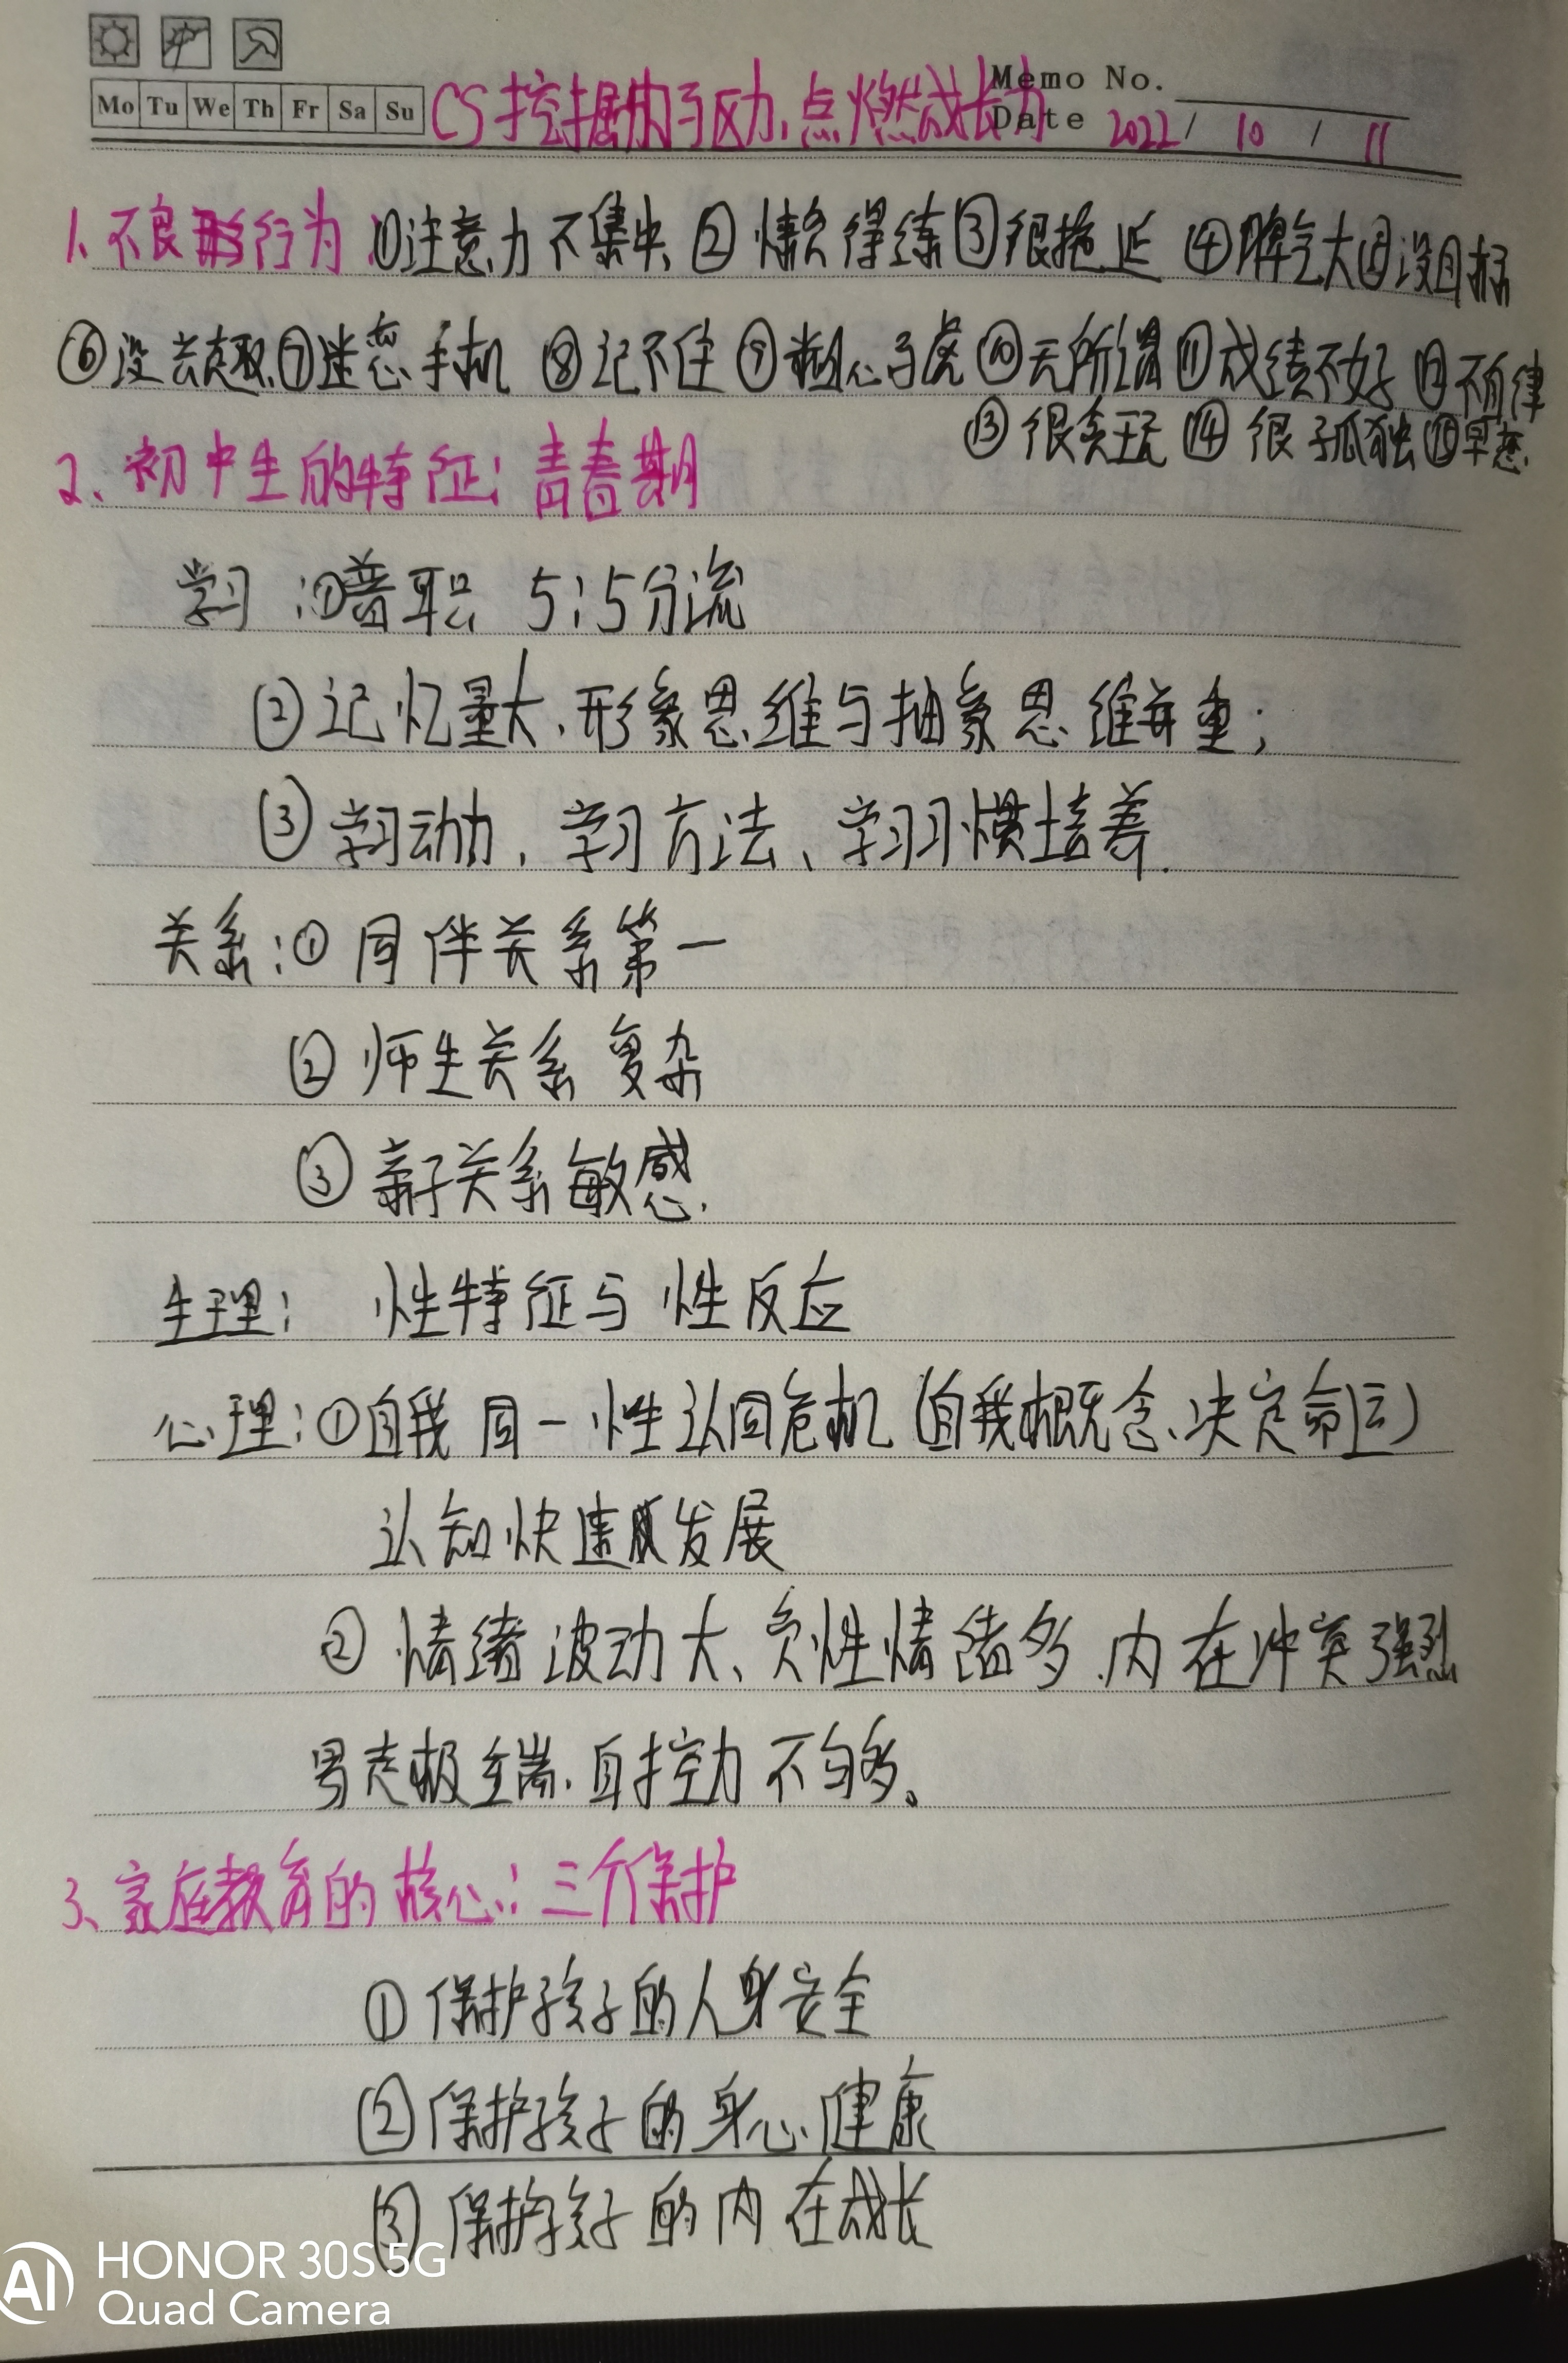 Mo Tu We Th Fr Sa Su
Memo No.
CS挖掘内驱力,点燃成长力
Date 2022 / 10 / 11
1、不良行为:①注意力不集中 ②懒得练③很拖延 ④脾气大⑤没目标
⑥没兴趣⑦迷恋手机 ⑧记不住 ⑨粗心马虎⑩无所谓⑪成绩不好 ⑫不自律
⑬很贪玩 ⑭很孤独⑮早恋
2、初中生的特征:青春期
学习:①普职 5:5分流
②记忆量大、形象思维与抽象思维并重;
③学习动力、学习方法、学习习惯培养.
关系:①同伴关系第一
②师生关系复杂
③亲子关系敏感.
生理: 性特征与性反应
心理:①自我同一性认同危机(自我概念、决定命运)
认知快速发展
②情绪波动大、负性情绪多、内在冲突强烈
易走极端、自控力不够。
3、家庭教育的核心:三个保护
①保护孩子的人身安全
②保护孩子的身心健康
③保护孩子的内在成长
AI HONOR 30S 5G
Quad Camera